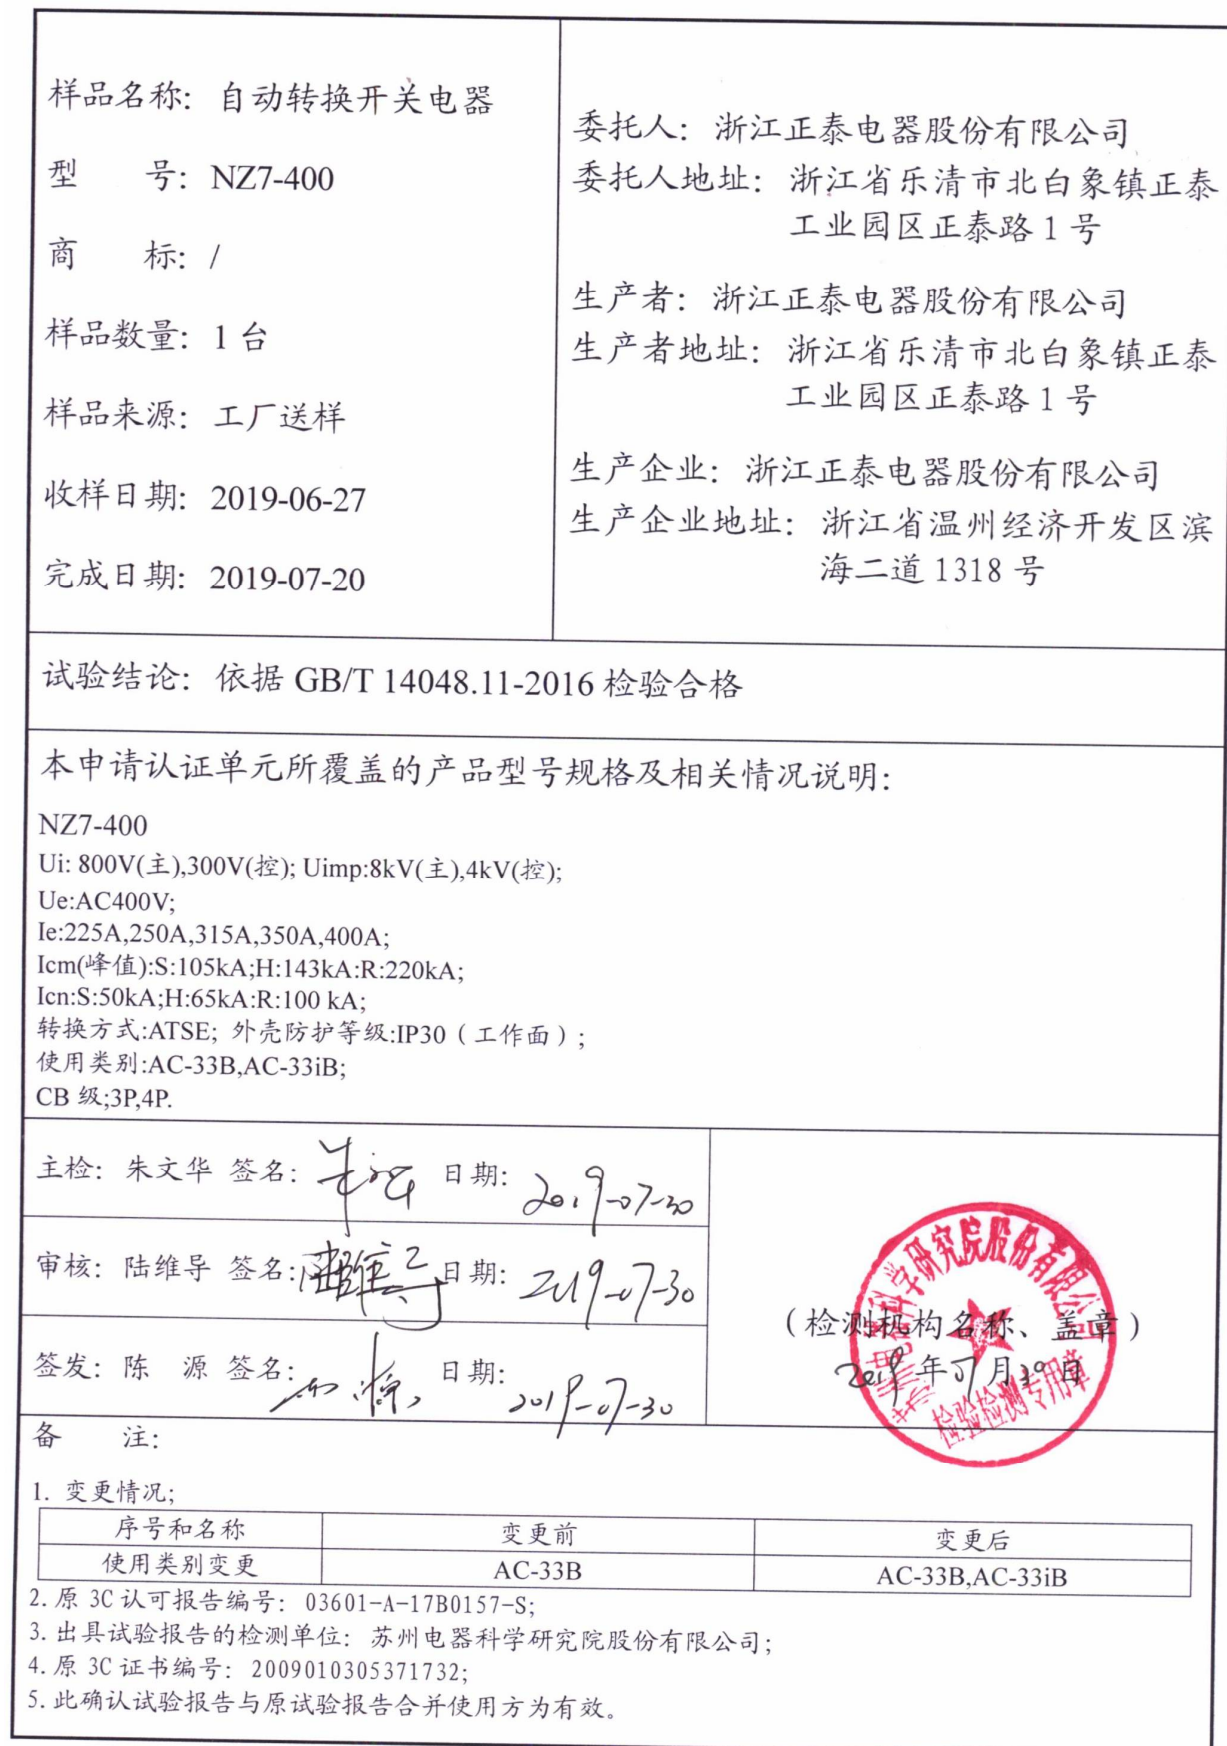 样品名称: 自动转换开关电器
型 号: NZ7-400
商 标: /
样品数量: 1 台
样品来源: 工厂送样
收样日期: 2019-06-27
完成日期: 2019-07-20
委托人: 浙江正泰电器股份有限公司
委托人地址: 浙江省乐清市北白象镇正泰
工业园区正泰路 1 号
生产者: 浙江正泰电器股份有限公司
生产者地址: 浙江省乐清市北白象镇正泰
工业园区正泰路 1 号
生产企业: 浙江正泰电器股份有限公司
生产企业地址: 浙江省温州经济开发区滨
海二道 1318 号
试验结论: 依据 GB/T 14048.11-2016 检验合格
本申请认证单元所覆盖的产品型号规格及相关情况说明:
NZ7-400
Ui: 800V(主),300V(控); Uimp:8kV(主),4kV(控);
Ue:AC400V;
Ie:225A,250A,315A,350A,400A;
Icm(峰值):S:105kA;H:143kA:R:220kA;
Icn:S:50kA;H:65kA:R:100 kA;
转换方式:ATSE; 外壳防护等级:IP30（工作面）;
使用类别:AC-33B,AC-33iB;
CB 级;3P,4P.
主检: 朱文华 签名: 日期: 2019-07-30
审核: 陆维导 签名: 陆维导 日期: 2019-07-30
签发: 陈 源 签名: 日期: 2019-07-30
苏州电器科学研究院股份有限公司
（检测机构名称、盖章）
2019 年 07 月 30 日
检验检测专用章
备 注:
1. 变更情况;
序号和名称 变更前 变更后
使用类别变更 AC-33B AC-33B,AC-33iB
2. 原 3C 认可报告编号: 03601-A-17B0157-S;
3. 出具试验报告的检测单位: 苏州电器科学研究院股份有限公司;
4. 原 3C 证书编号: 2009010305371732;
5. 此确认试验报告与原试验报告合并使用方为有效。